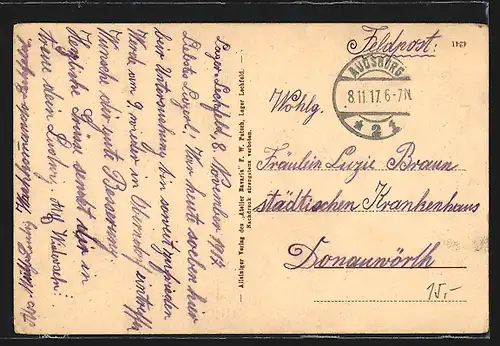 Lager-Lechfeld, 8. November 1917
Liebste Luzie! War heute soeben hier
zur Untersuchung bin soweit zufrieden
Werde am 9. wieder in Oberndorf eintreffen
Wünsche dir gute Besserung.
Herzliche Grüsse sendet dir in
treue dein Ludwig, Auf Wiedersehn!
— Alleiniger Verlag des „Atelier Bavaria" F. W. Patsch, Lager Lechfeld. —
Nachdruck strengstens verboten.
Feldpost.
AUGSBURG
8.11.17. 6-7N.
* 2 *
Wohlg.
Fräulein Luzie Braun
städtischen Krankenhaus
Donauwörth
15,-